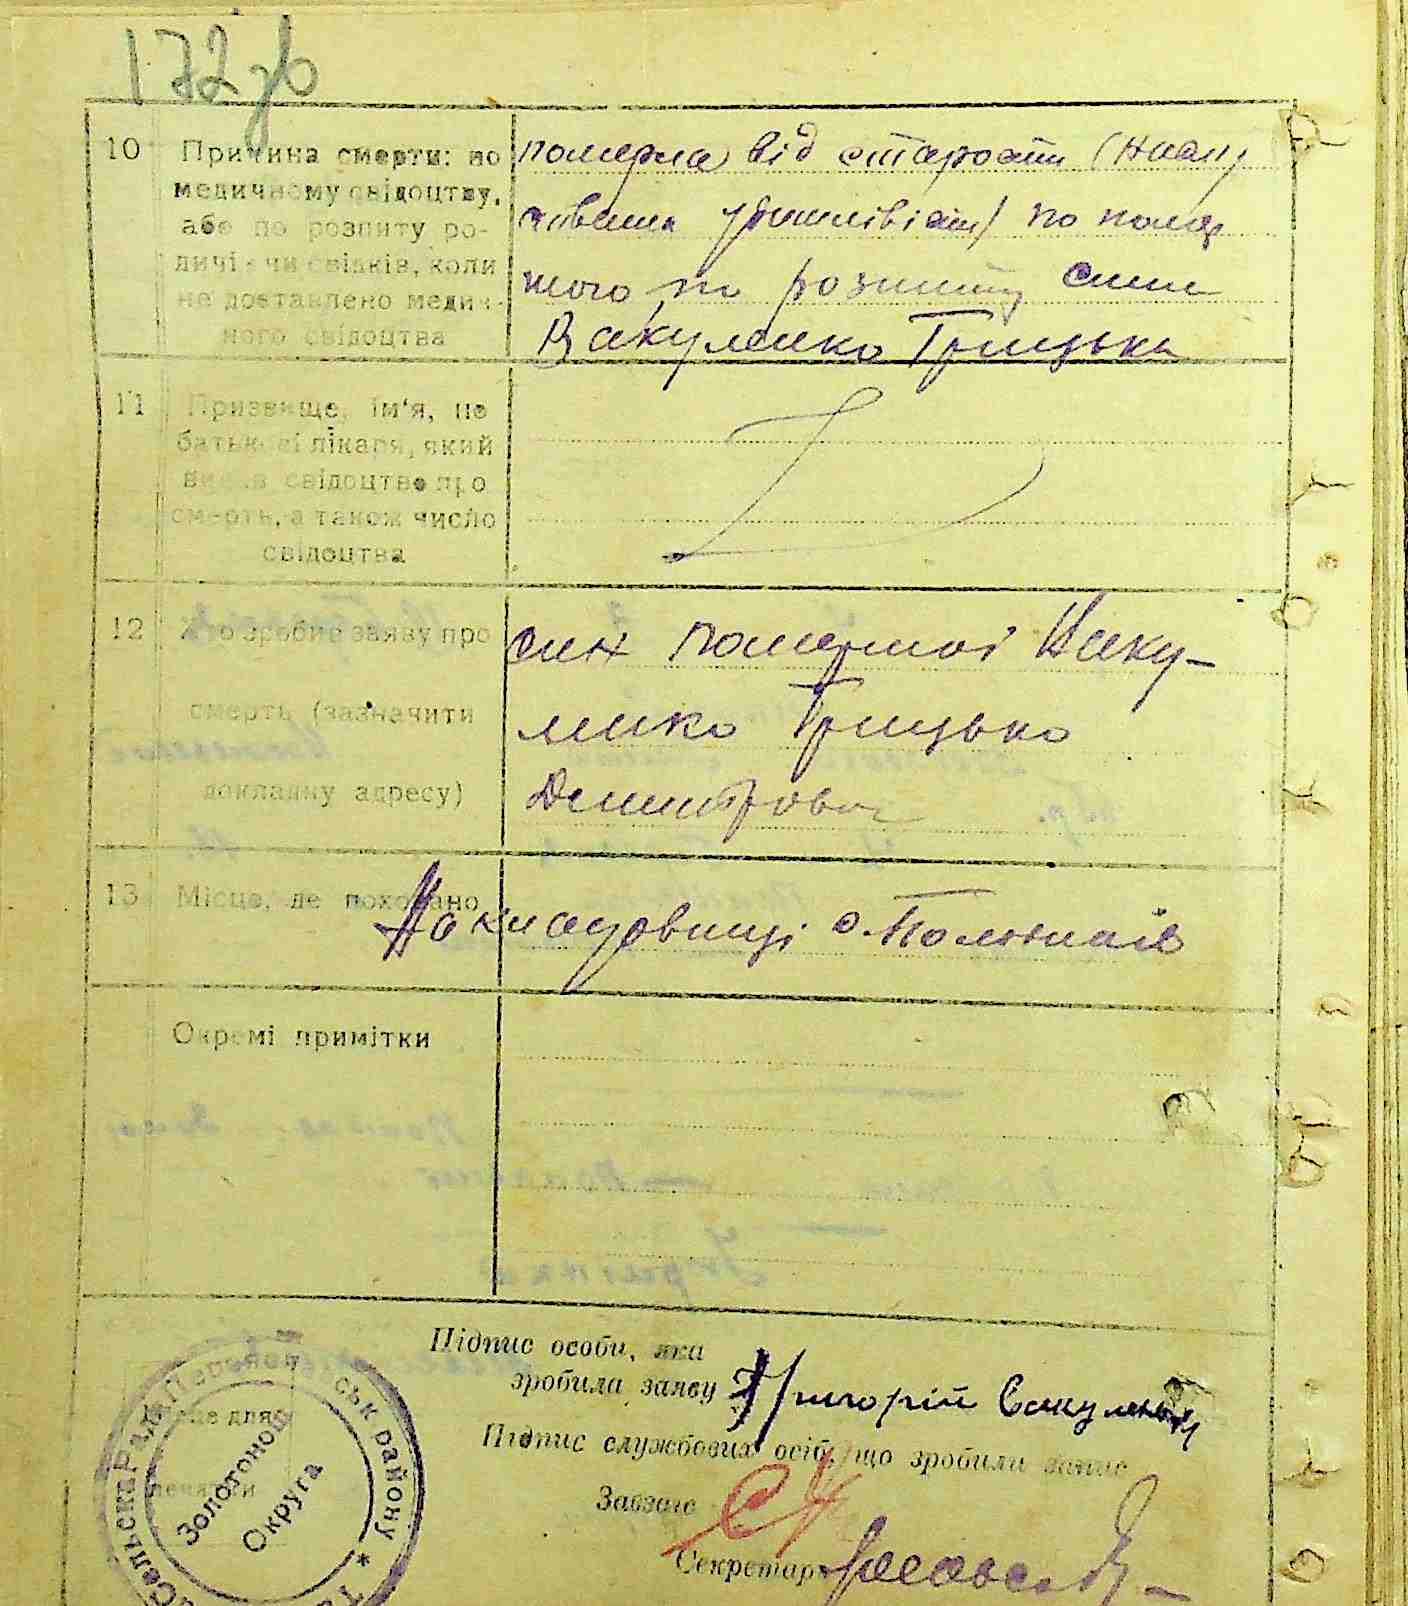 172 зв
10 Причина смерти: по
медичному свідоцтву,
або по розпиту ро-
дичів чи свідків, коли
не доставлено медич-
ного свідоцтва
померла від старости
по
того по розпиту сина
Вакуленко Грицька
11 Призвище, ім'я, по
батькові лікаря, який
видав свідоцтво про
смерть, а також число
свідоцтва
12 Хто зробив заяву про
смерть (зазначити
докладну адресу)
син помершої Ваку-
ленко Грицько
Дмитрович
13 Місце, де поховано
На кладовищі с.
Окремі примітки
Підпис особи, яка
зробила заяву Григорій Вакуленко
Підпис службових осіб, що зробили запис
Завзагс
Секретар
Місце для
печатки
Сельська Рада
ськ району *
Золотонош
Округа